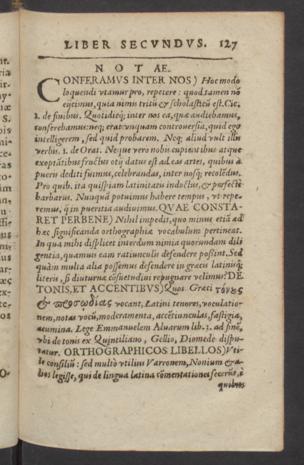 LIBER SECVNDVS. 127
NOTAE.
CONFERAMVS INTER NOS) Hoc modo
loquendi vtamur pro, repetere: quod tamen nō
cicinus, quia nimis tritū & scholasticū est. Cic.
2. de finibus. Quotidieq; inter nos ea, quæ audiebamus,
conferebamus: neq; erat vnquam controuersia, quid ego
intelligerem, sed quid probarem. Neq; aliud vult illu
verbis. 1. de Orat. Neque vero nobis cupientibus atque
exoptātibus fructus otij datus est ad eas artes, quibus à
pueri dediti fuimus, celebrandas, inter nosq; recolēdas.
Pro quib. ita quispiam latinitatu indoctus, & perfectè
barbarus. Nunquā potuimus habere tempus, vt repe-
remus, q in pueritia audiuimus. QVAE CONSTA-
RET PERBENE) Nihil impedit, quo minus etiā ad
hæc significanda orthographiæ vocabulum pertineat.
In qua mihi displicet interdum nimia quorundam dili
gentia, quamus eam ratiunculis defendere possint. Sed
quàm multa alia possemus defendere in græcis latinisq;
literis, si diuturna cōsuetudini repugnare velimus? DE
TONIS, ET ACCENTIBVS) Quos Græci τόνους
& προσῳδίας vocant, Latini tenores, voculatio-
nem, notas vocū, moderamenta, accētiunculas, fastigia,
acumina. Lege Emmanuelem Aluarum lib. 3. ad finē,
vbi de tonis ex Quintiliano, Gellio, Diomede dispu-
tatur. ORTHOGRAPHICOS LIBELLOS) Vti-
le consiliū: sed multò vtilius Varronem, Nonium & a-
lios legisse, qui de lingua latina cōmentationes
quibus